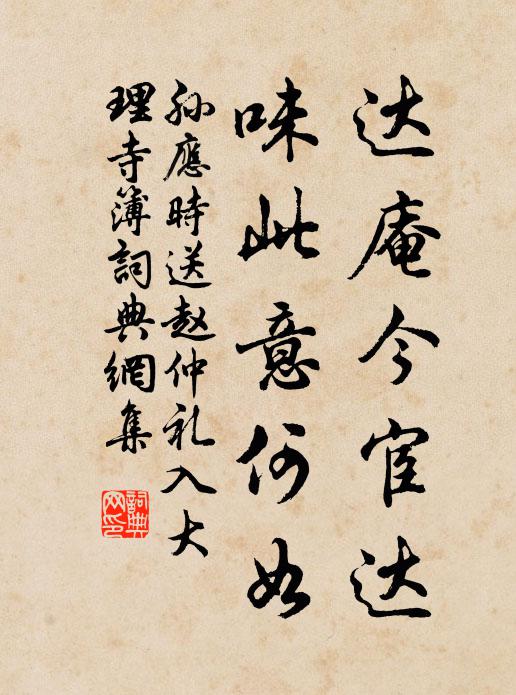 达庵今宦达
味此意何如
孙應時送赵仲礼入大
理寺簿詞典網集
詞典网印